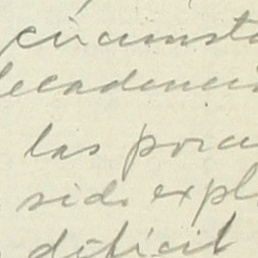 circunsta
decadenci
las porci
sido expl
difícil